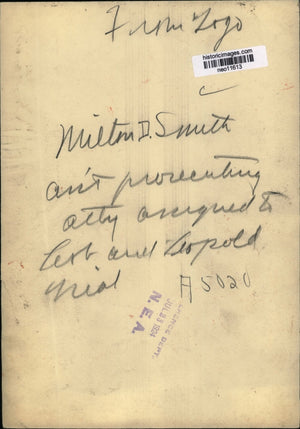 From Logo
historicimages.com
neo11613
Milton D. Smith
ass't prosecuting
atty assigned to
Leob and Leopold
trial
A5020
REFERENCE DEPT.
JUL 23 1924
N. E. A.